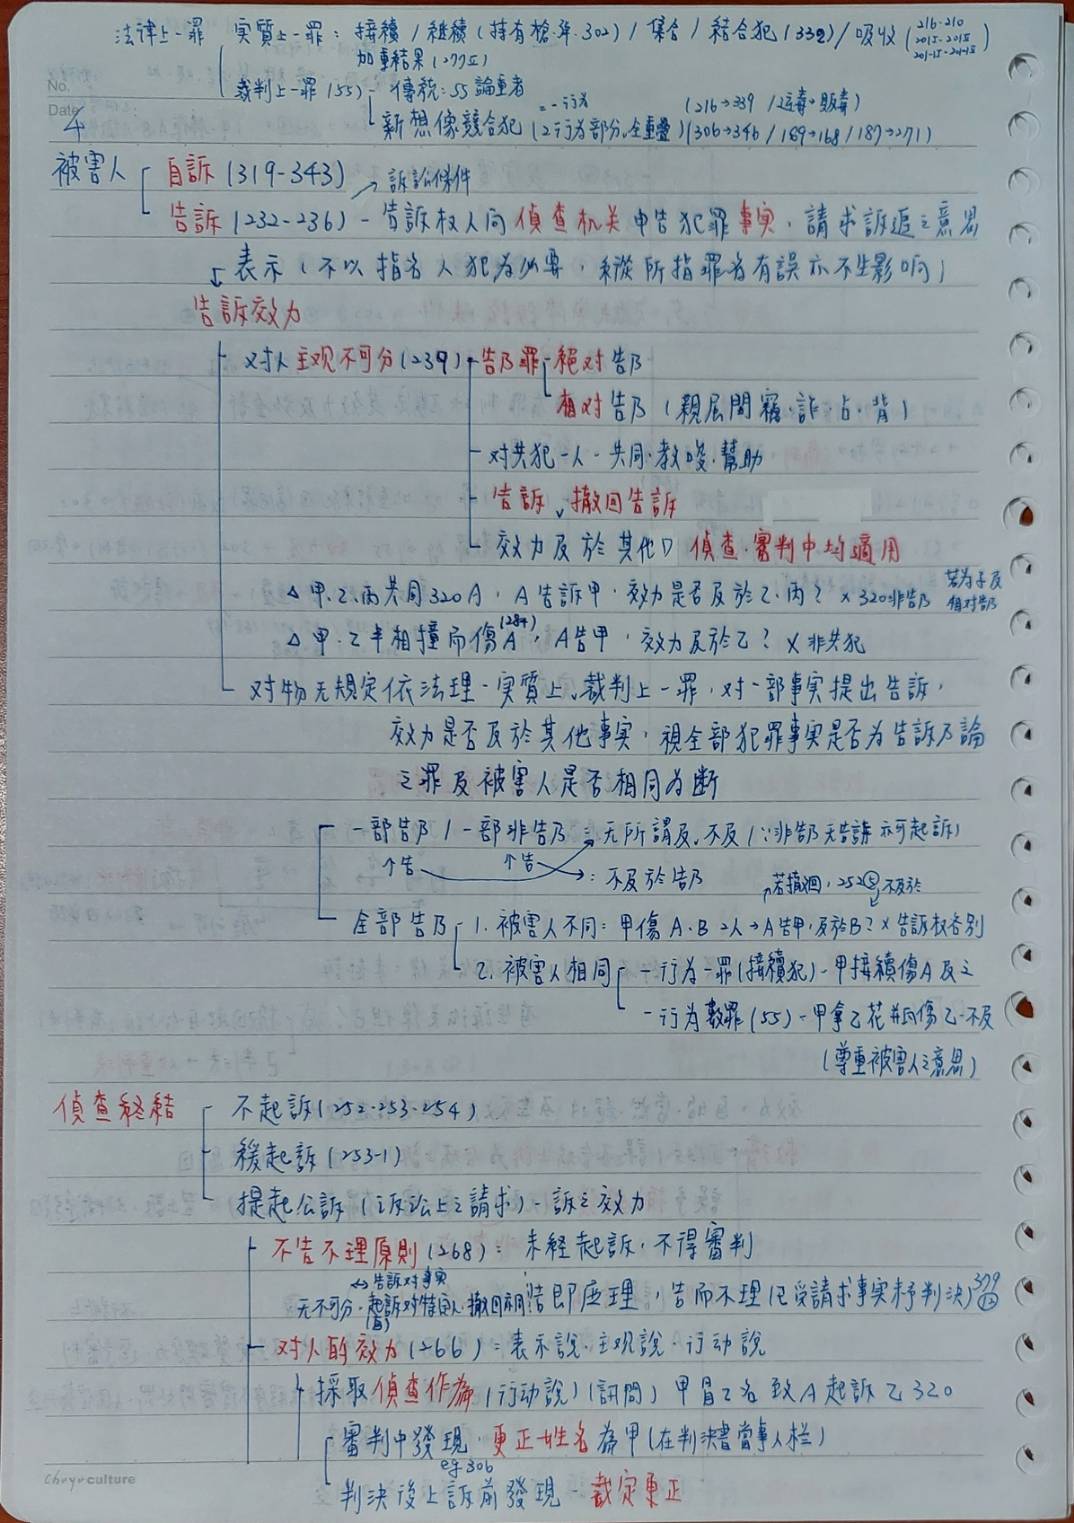 法律上一罪 實質上一罪：接續／継續（持有槍.弹.302）／集合／結合犯(332)／吸收(216-210
加重結果(277Ⅱ)
裁判上一罪(55) 傳統：55論重者
No.
Date 4
新想像競合犯(2行为部分.全重疊)(306→346／169→168／187→271)
=一行为 (216→339／运毒.販毒)
被害人 自訴(319-343)
→訴訟條件
告訴(232-236) - 告訴权人向偵查机关申告犯罪事実，請求訴追之意思
表示（不以指名人犯為必要，縱所指罪名有誤亦不生影响）
告訴效力
对人主观不可分(239) 告乃罪 絕对告乃
相对告乃（親屬間竊.詐.占.背）
对共犯一人 - 共同.教唆.幫助
告訴、撤回告訴
效力及於其他 偵查.審判中均適用
△甲.乙.丙共同320A，A告訴甲，效力是否及於乙.丙？×320非告乃 若为子及相对告乃
△甲.乙車相撞而傷A(284)，A告甲，效力及於乙？×非共犯
对物无規定依法理 - 实質上、裁判上一罪，对一部事实提出告訴，
效力是否及於其他事实，視全部犯罪事実是否为告訴乃論
之罪及被害人是否相同為斷
一部告乃／一部非告乃：无所謂及.不及（∵非告乃无告訴亦可起訴）
个告 个告 ：不及於告乃
若撤回，252⑤不及於
全部告乃 1.被害人不同：甲傷A.B 2人→A告甲，及於B？×告訴权各別
2.被害人相同 一行为一罪(接續犯) - 甲接續傷A及之
一行为數罪(55) - 甲拿乙花并砸傷乙-不及
（尊重被害人之意思）
偵查終結 不起訴(252.253.254)
緩起訴(253-1)
提起公訴（訴訟上之請求） - 訴之效力
不告不理原則(268)：未経起訴，不得審判
↔告訴对事実
无不可分.起訴对特定人.撤回亦同 告即應理，告而不理（已受請求事实未予判決）379
对人的效力(266)：表示說.主观說.行动說
採取偵查作為（行动說）（訊問）甲冒乙名致A起訴乙320
審判中發現，更正姓名為甲（在判決書當事人欄）
eg306
判決後上訴前發現 - 裁定更正
Chuyu culture